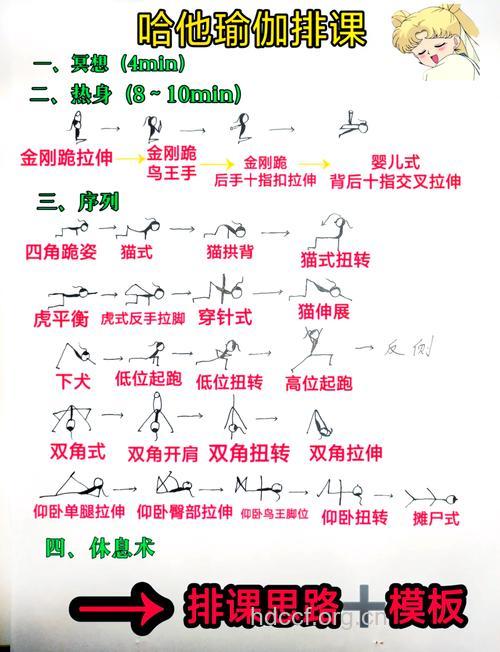 哈他瑜伽排课
一、冥想（4min）
二、热身（8~10min）
金刚跪拉伸
金刚跪
鸟王手
金刚跪
后手十指扣拉伸
婴儿式
背后十指交叉拉伸
三、序列
四角跪姿
猫式
猫拱背
猫式扭转
虎平衡
虎式反手拉脚
穿针式
猫伸展
下犬
低位起跑
低位扭转
高位起跑
反侧
双角式
双角开肩
双角扭转
双角拉伸
仰卧单腿拉伸
仰卧臀部拉伸
仰卧鸟王脚位
仰卧扭转
摊尸式
四、休息术
排课思路+模板
hdccf.org.cn